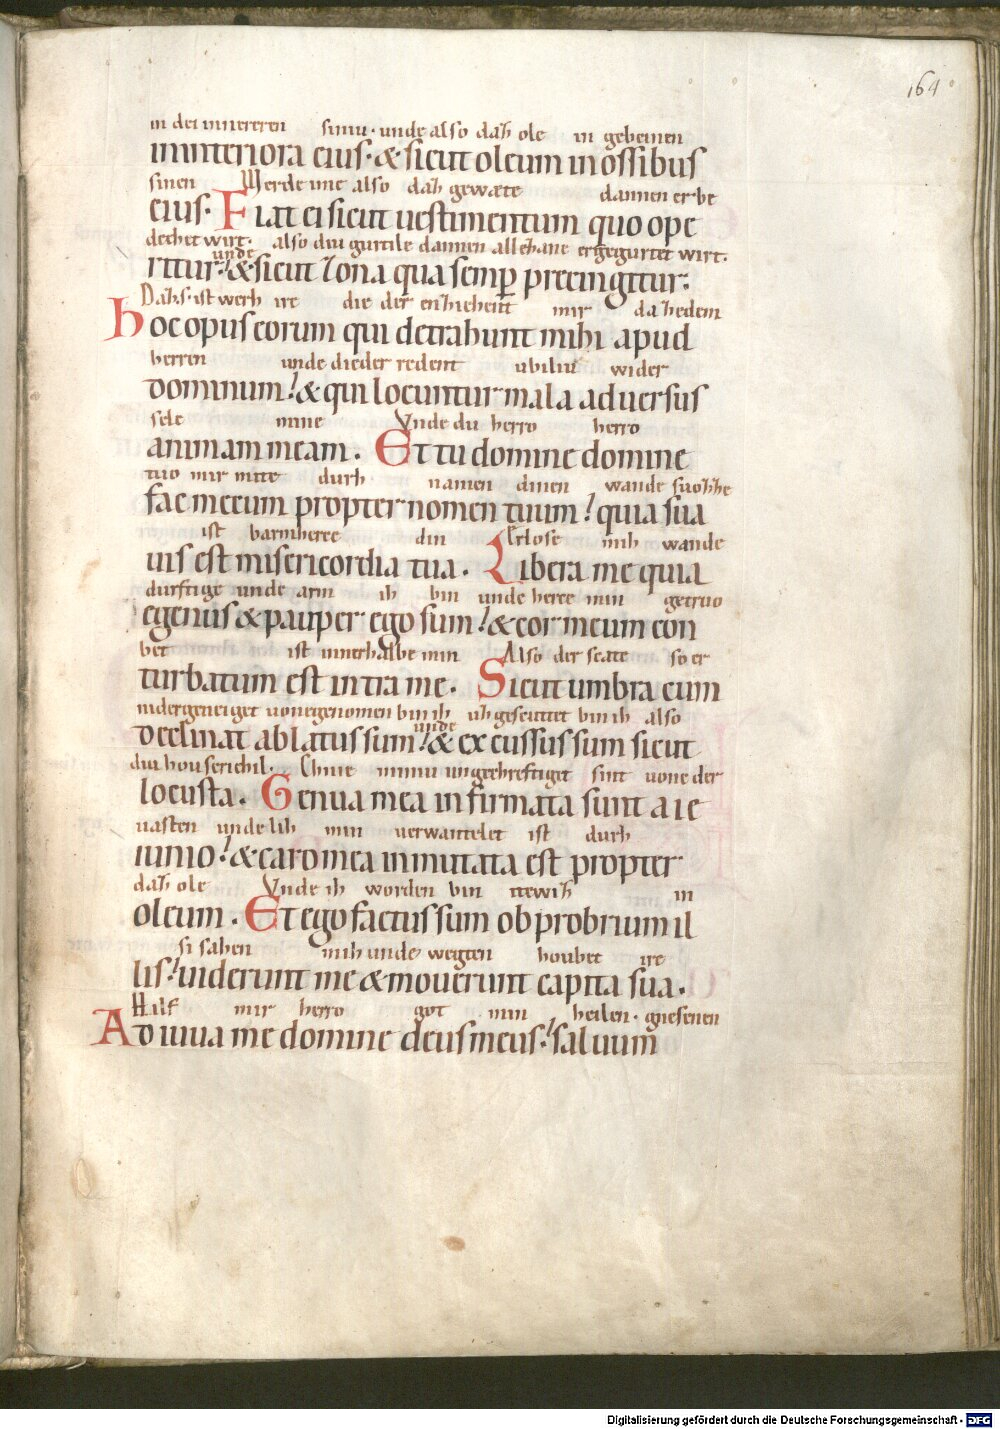 164
in dei innereren sinu · unde also daz ole in gebeinen
in interiora eius · & sicut oleum in ossibus
sinen Werde ime also daz gewæte dannen er be
eius · Fiat ei sicut uestimentum quo ope
dechet wirt · also diu gurtile dannen allezane er gegurtet wirt ·
unde
ritur · & sicut zona qua semp precingitur ·
Dazs · ist werh ire die der en ziehent mir da ze dem
Hoc opus eorum qui detrahunt mihi apud
herren unde die der redent ubiliu wider
dominum & qui locuntur mala aduersus
sele mine Vnde du herro herro
animam meam · Et tu domine domine
tuo mir mite durh namen dinen wande suozze
fac mecum propter nomen tuum quia sua
ist barmherce din Erlose mih wande
uis est misericordia tua · Libera me quia
durftige unde arm ih bin unde herce min getruo
egenus & pauper ego sum & cor meum con
bet ist innerhalbe min Also der scate so er
turbatum est intra me · Sicut umbra cum
nidergeneiget uonegenomen bin ih uzgescuttet bin ih also
unde
declinat ablatus sum & excussus sum sicut
diu houscrichil · Chnie miniu ungechreftiget sint uone der
locusta · Genua mea infirmata sunt a ie
uasten unde lih min uerwantelet ist durh
iunio & caro mea inmutata est propter
daz ole Vnde ih worden bin itewiz in
oleum · Et ego factus sum obprobrium il
si sahen mih unde wegten houbet ire
lis uiderunt me & mouerunt capita sua ·
Hilf mir herro got min heilen · gnesenen
Adiuua me domine deus meus saluum
Digitalisierung gefördert durch die Deutsche Forschungsgemeinschaft - DFG